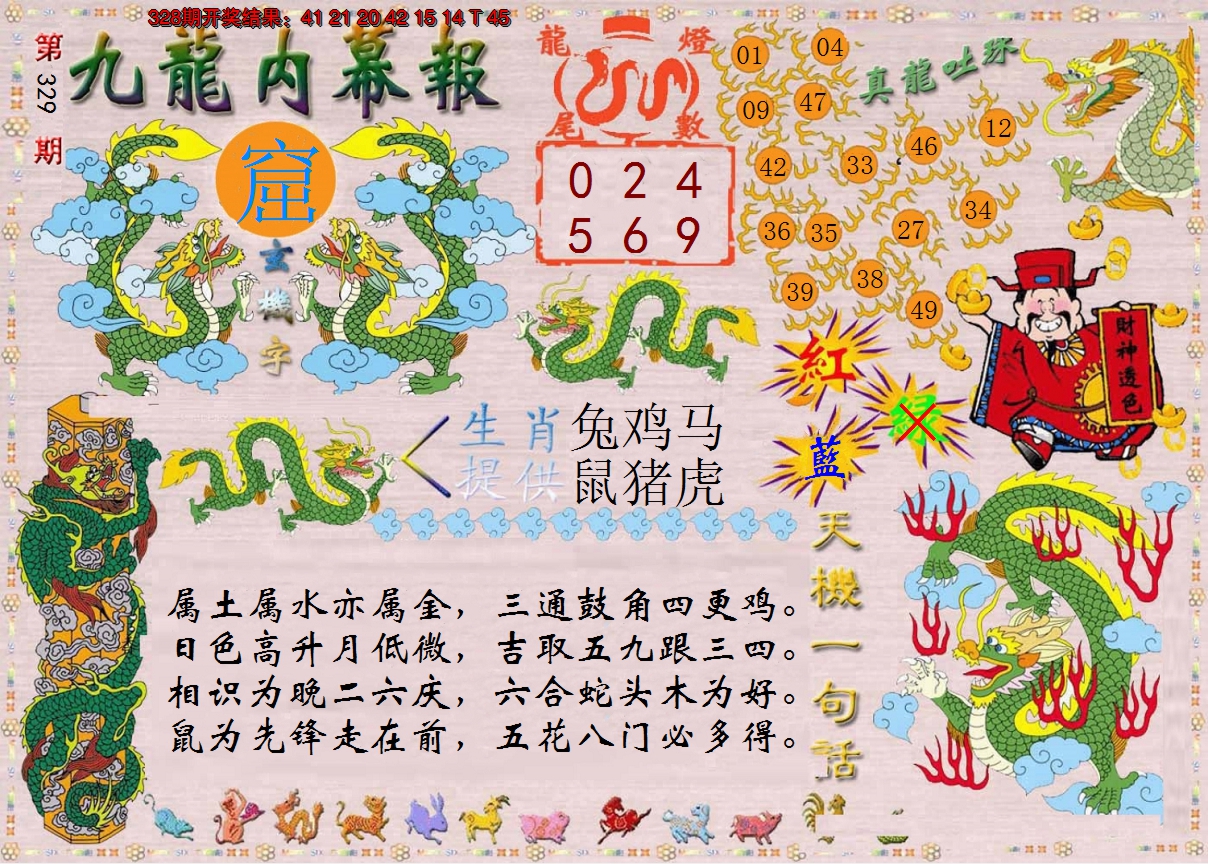 328期开奖结果：41 21 20 42 15 14 T 45
第329期
九龍内幕報
窟
玄機字
龍燈
尾數
0 2 4
5 6 9
真龍吐珠
01 04
09 47
42 33 46 12
36 35 27 34
39 38 49
財神透色
紅
绿
藍
生肖
提供
兔鸡马
鼠猪虎
天機一句话
属土属水亦属金，三通鼓角四更鸡。
日色高升月低微，吉取五九跟三四。
相识为晚二六庆，六合蛇头木为好。
鼠为先锋走在前，五花八门必多得。